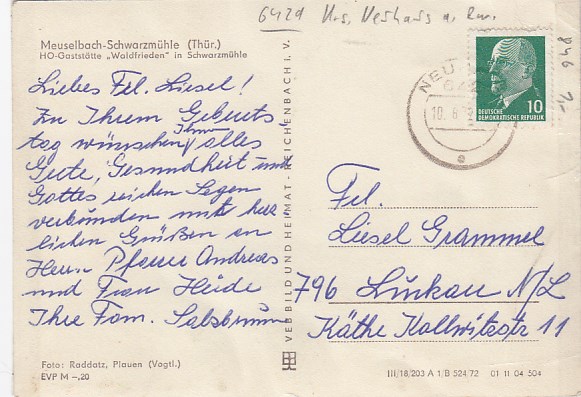 6421
Meuselbach-Schwarzmühle (Thür.)
HO-Gaststätte „Waldfrieden" in Schwarzmühle
Liebes Frl. Liesel!
Zu Ihrem Geburts
tag wünschen Ihnen alles
Gute, Gesundheit und
Gottes reichen Segen
verbunden mit herz
lichen Grüßen an
Herrn Pfarrer Andreas
und Frau Heide
Ihre Fam. Salzbrunn
Foto: Raddatz, Plauen (Vogtl.)
EVP M –,20
VEB BILD UND HEIMAT REICHENBACH i. V.
NEU
10. 6.
10
DEUTSCHE
DEMOKRATISCHE REPUBLIK
846
Frl.
Liesel Grammel
796 Luckau N/L
Käthe Kollwitzstr 11
III/18/203 A 1/B 524/72 01 11 04 504